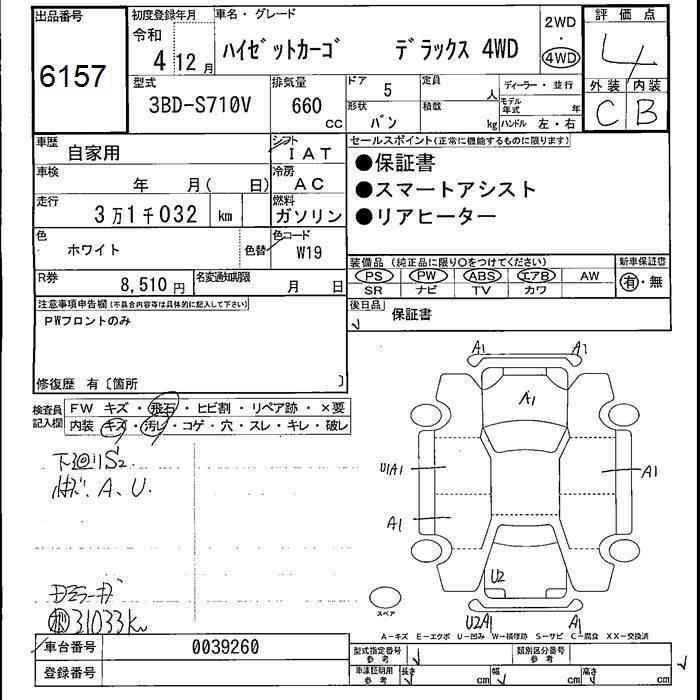 出品番号
6157
初度登録年月
令和
4 12 月
車名・グレード
ハイゼットカーゴ デラックス 4WD
2WD
・
4WD
評価点
4
外装 内装
C B
型式
3BD-S710V
排気量
660
CC
ドア
5
形状
バン
定員
人
積載
kg
ディーラー・並行
モデル
年式
年
ハンドル 左・右
車歴
自家用
シフト
IAT
車検
年 月( 日)
冷房
AC
走行
3万1千032 km
燃料
ガソリン
色
ホワイト
色替
色コード
W19
R券
8,510 円
名変通知期限
月 日
セールスポイント(正常に機能するものに限ります)
●保証書
●スマートアシスト
●リアヒーター
装備品(純正品に限り○をつけてください)
新車保証書
PS PW ABS エアB AW
SR ナビ TV カワ
有・無
後日品
保証書
注意事項申告欄(不具合内容等は具体的に記入して下さい)
PWフロントのみ
修復歴 有〔箇所 〕
検査員
記入欄
FW キズ・飛石・ヒビ割・リペア跡・×要
内装 キズ・汚レ・コゲ・穴・スレ・キレ・破レ
下廻りS2
A、U.
31033km
A1 A1
A1
U1A1
A1
A1
U2
U2A1
A1
スペア
A-キズ E-エクボ U-凹み W-補修跡 S-サビ C-腐食 XX-交換済
車台番号
0039260
登録番号
型式指定番号
参考
類別区分番号
参考
車庫証明用
参考
長さ
cm
幅
cm
高さ
cm